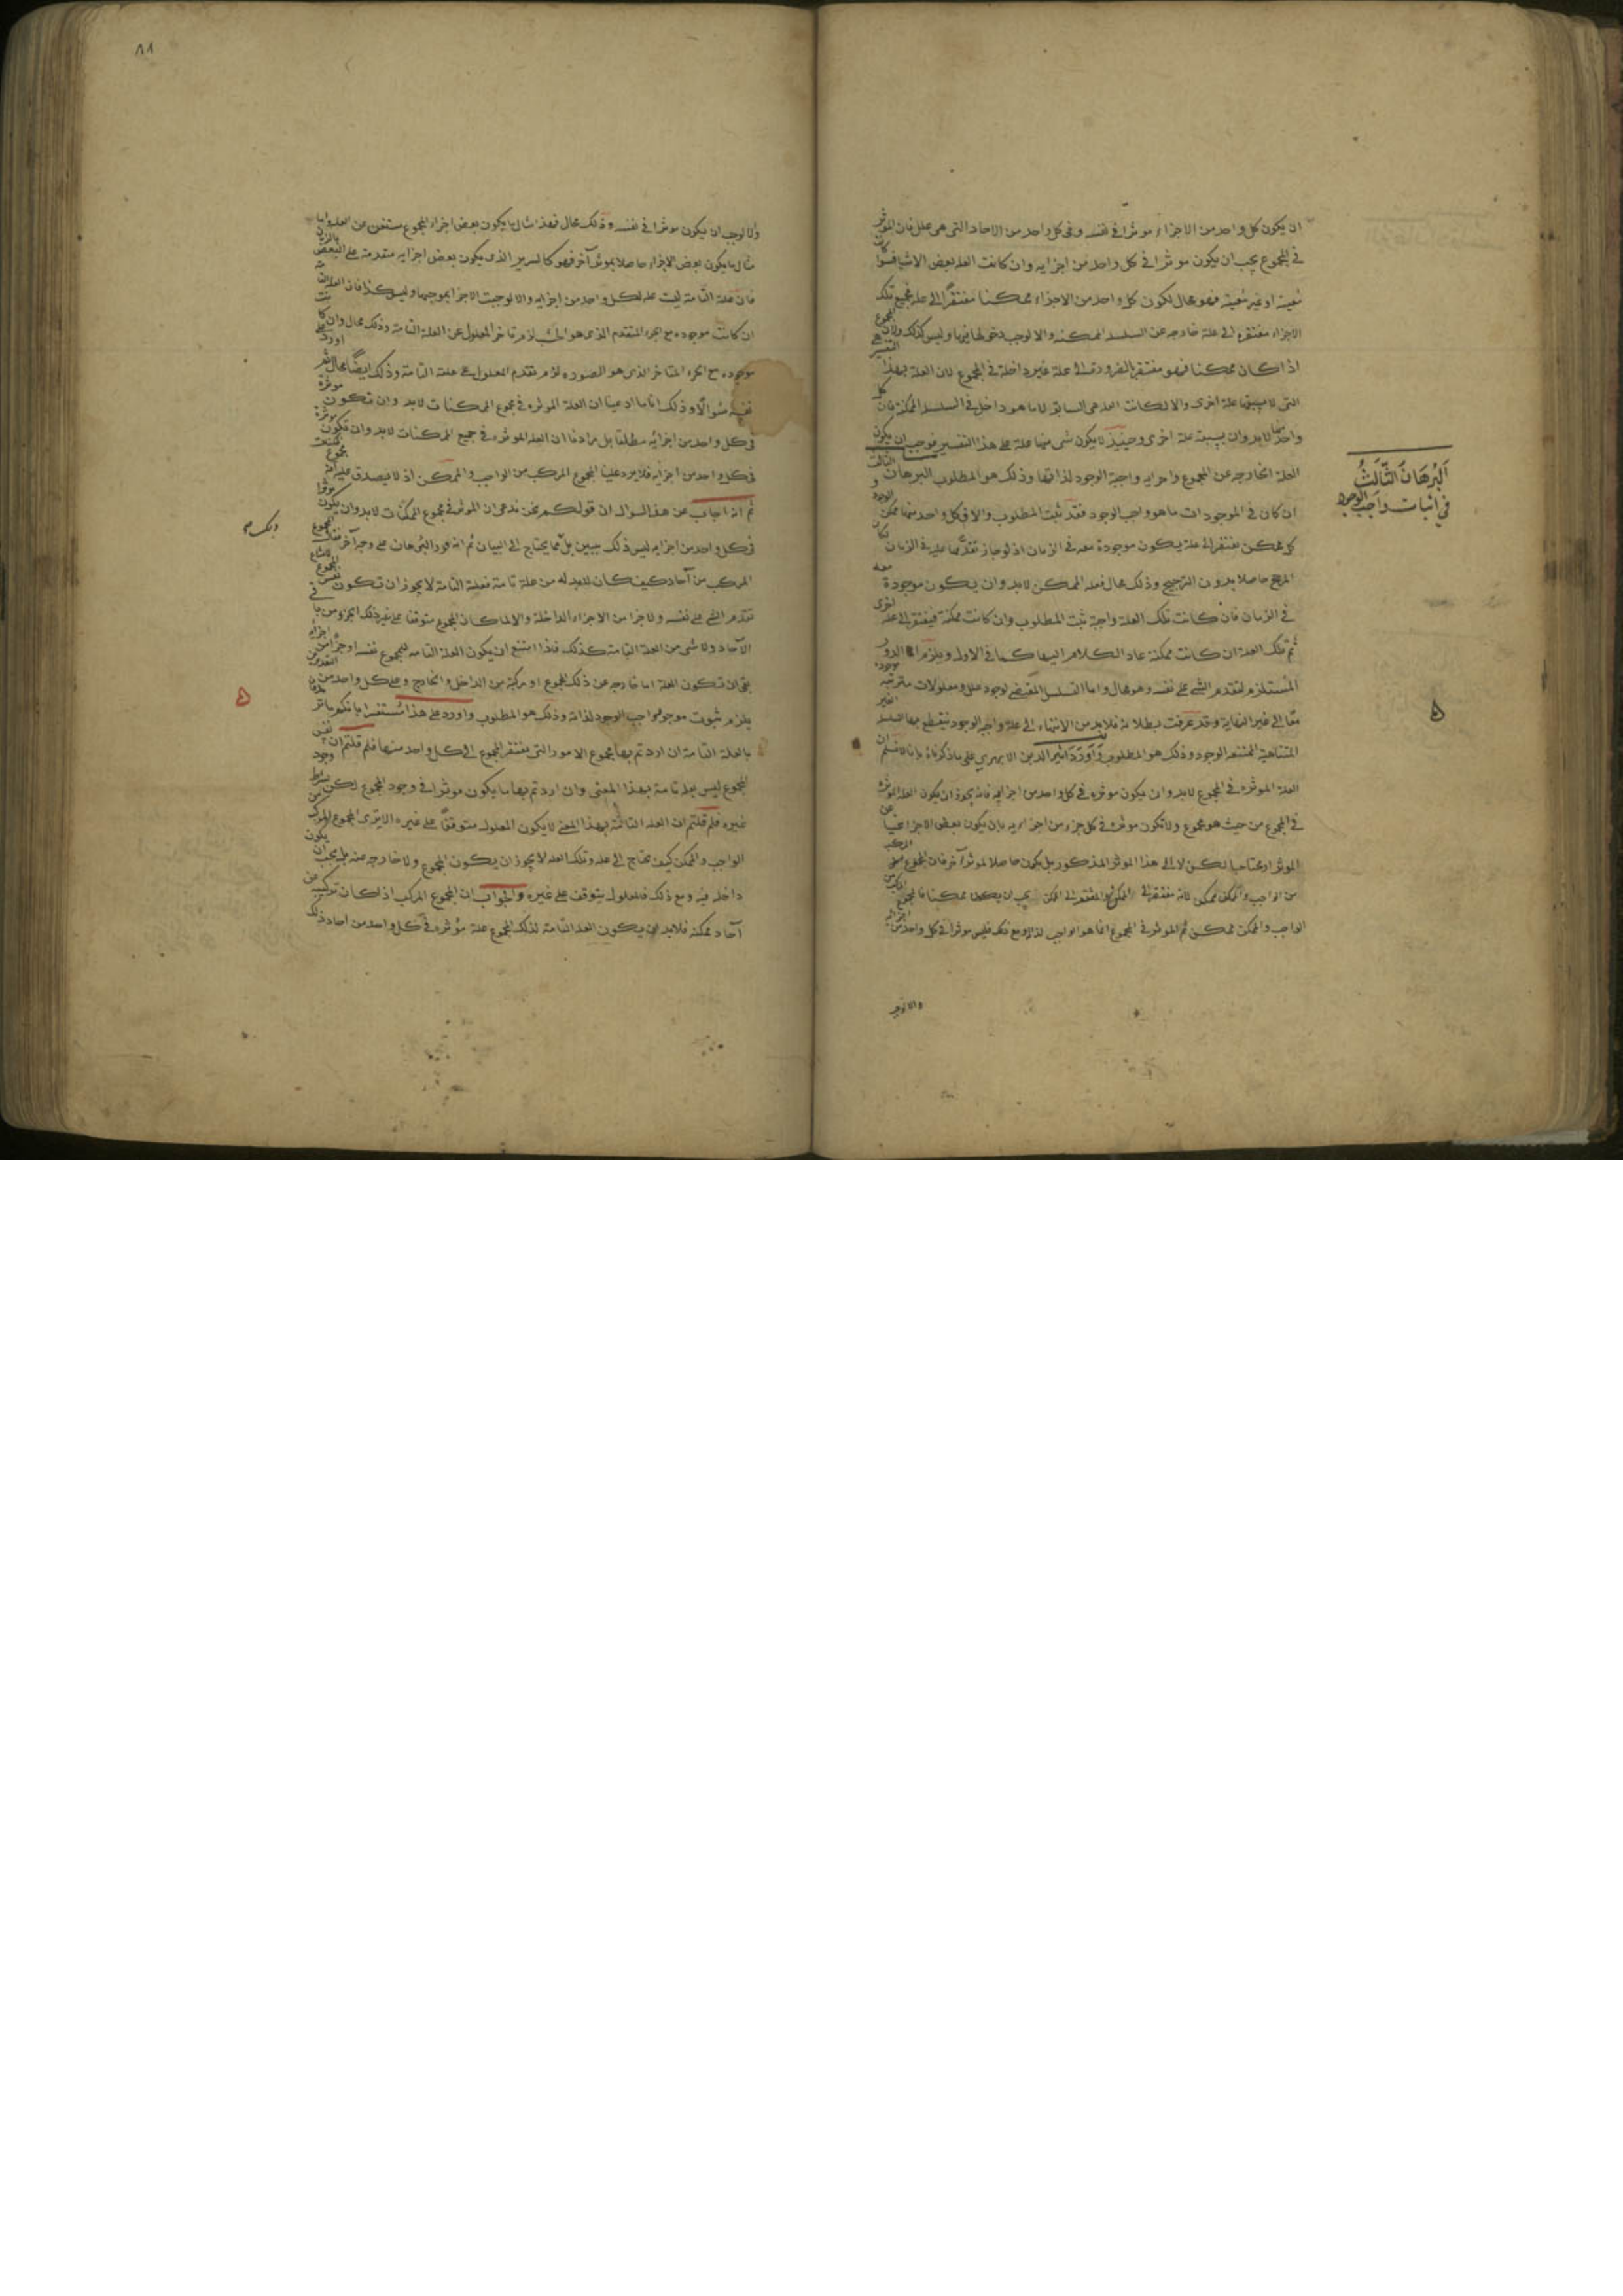 ان يكون كل واحد من الاجزاء موثرا فى نفسه وفى كل واحد من الاحاد التى هى علل فان الموثر
فى المجموع يجب ان يكون موثرا فى كل واحد من اجزايه وان كانت العله بعض الاشيا سوا كان
معينة او غير معينة فهو محال لكون كل واحد من الاجزاء ممكنا مفتقرا الى علة فجميع تلك
الاجزاء مفتقره الى علة خارجه عن السلسله الممكنه والا لوجب دخولها فيها وليس كذلك ولان المجموع
اذا كان ممكنا فهو مفتقر بالضرورة الى علة غير داخلة فى المجموع لان العلة بهذا التفسير هى
التى لا يسبقها علة اخرى والا لكانت العله هى السابقه لا ما هو داخل فى السلسله الممكنة فان كل
واحد منها لا بد وان يسبقه علة اخرى وحينئذ لا يكون شى منها علة على هذا التفسير فوجب ان يكون
العلة الخارجه عن المجموع واجزايه واجبة الوجود لذاتها وذلك هو المطلوب البرهان الثالث
ان كان فى الموجودات ما هو واجب الوجود فقد ثبت المطلوب والا فكل واحد منها ممكن الوجود و
كل ممكن يفتقر الى علة يكون موجودة معه فى الزمان اذ لو جاز تقدمها عليه فى الزمان لكان
المرجح حاصلا بدون الترجيح وذلك محال فعله الممكن لا بد وان يكون موجودة معه
فى الزمان فان كانت تلك العلة واجبة ثبت المطلوب وان كانت ممكنة فيفتقر الى علة اخرى
ثم تلك العلة ان كانت ممكنة عاد الكلام اليها كما فى الاولى ويلزم الدور
المستلزم لتقدم الشى على نفسه وهو محال واما التسلسل المقتضى لوجود علل ومعلولات مترتبة موجودة
معا الى غير النهاية وقد عرفت بطلانه فلا بد من الانتهاء الى علة واجبة الوجود تنقطع بها السلسله الغير
المتناهية الممتنعه الوجود وذلك هو المطلوب واورد اثير الدين الابهرى على ما ذكرناه بانا لا نسلم ان
العلة الموثره فى المجموع لا بد وان يكون موثره فى كل واحد من اجزايه فانه يجوز ان يكون العله الموثره
فى المجموع من حيث هو مجموع ولا تكون موثره فى كل جزء من اجزايه بان يكون بعض الاجزا غنيا عن
الموثر او محتاجا لكن لا الى هذا الموثر المذكور بل يكون حاصلا لموثر آخر فان المجموع المركب
من الواجب والممكن ممكن لانه مفتقر الى الممكن والمفتقر الى الممكن يجب ان يكون ممكنا فالمجموع المركب من
الواجب والممكن ممكن ثم الموثر فى المجموع انما هو الواجب لذاته ومع ذلك فليس موثرا فى كل واحد من اجزايه
والا لوجب
البرهان الثالث
فى اثبات واجب الوجود
٨١
والا لوجب ان يكون موثرا فى نفسه وذلك محال فهذا مثال ما يكون بعض اجزاء المجموع مستغن عن العله واما
مثال ما يكون بعض الاجزاء حاصلا بموثر آخر فهو كالسرير الذى يكون بعض اجزايه متقدمة على البعض بالزمان
فان علة التامة ليست علة لكل واحد من اجزايه والا لوجبت الاجزا بموجبها وليس كذا فان العله التامه
ان كانت موجوده مع الجزء المتقدم الذى هو الخشب لزم تاخر المعلول عن العلة التامة وذلك محال وان كانت
موجوده مع الجزء المتاخر الذى هو الصوره لزم تقدم المعلول على علته التامة وذلك ايضا محال ثم اورد على
نفسه سوالا وذلك انا ما ادعينا ان العلة الموثره فى مجموع الممكنات لا بد وان تكون موثرة
فى كل واحد من اجزائه مطلقا بل مرادنا ان العله الموثره فى جميع الممكنات لا بد وان تكون موثرة
فى كل واحد من اجزايه فلا يرد علينا المجموع المركب من الواجب والممكن اذ لا يصدق عليه انه مجموع ممكنات
ثم انه اجاب عن هذا السوال ان قولكم نحن ندعى ان الموثر فى مجموع الممكنات لا بد وان يكون موثرا
فى كل واحد من اجزايه ليس ذلك ببين بل مما يحتاج الى البيان ثم انه قرر البرهان على وجه آخر فقال المجموع
المركب من آحاد كيف كان لا بد له من علة تامة فعلته التامة لا يجوز ان تكون نفس المجموع لامتناع
تقدم الشى على نفسه ولا جزا من الاجزاء الداخلة والا لما كان المجموع متوقفا على غير ذلك الجزء من باقى
الآحاد ولا شى من العلة التامة كذلك فاذا امتنع ان يكون العلة التامه للمجموع نفسه او جزأ من اجزائه
بقى ان تكون العلة اما خارجه عن ذلك المجموع او مركبة من الداخل والخارج وعلى كل واحد من التقديرين
يلزم ثبوت موجود واجب الوجود لذاته وذلك هو المطلوب واورد على هذا مستفسرا بانكم ما تريدون
بالعلة التامة ان اردتم بها مجموع الامور التى يفتقر المجموع الى كل واحد منها فلم قلتم ان نفس
المجموع ليس علة تامة بهذا المعنى وان اردتم بها ما يكون موثرا فى وجود المجموع لكن بشرط وجود
غيره فلم قلتم ان العله التامة بهذا المعنى لا يكون المعلول متوقفا على غيره الا يرى المجموع المركب من
الواجب والممكن كيف يحتاج الى علة وتلك العله لا يجوز ان يكون المجموع ولا خارجه عنه بل يجب ان يكون
داخله فيه ومع ذلك فالمعلول يتوقف على غيره والجواب ان المجموع المركب اذا كان تركيبه عن
آحاد ممكنة فلا بد ان يكون العلة التامة لذلك المجموع علة موثره فى كل واحد من احاد ذلك